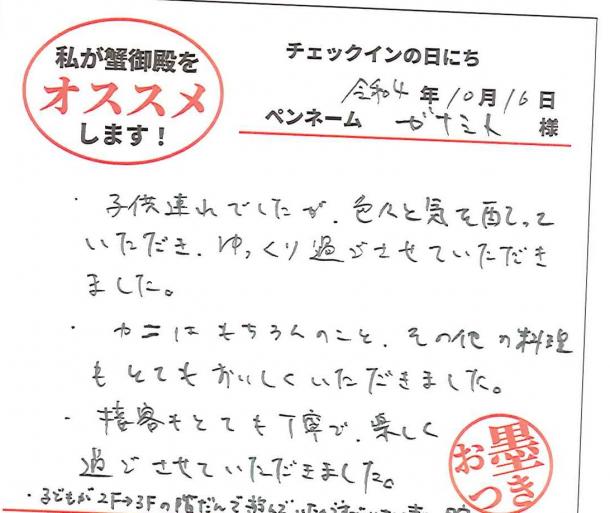 私が蟹御殿を
オススメ
します！
チェックインの日にち
令和4年10月16日
ペンネーム ガナミト 様
・子供連れでしたが、色々と気を配って
いただき、ゆっくり過ごさせていただき
ました。
・カニはもちろんのこと、その他の料理
もとてもおいしくいただきました。
・接客もとても丁寧で、楽しく
過ごさせていただきました。
お墨つき
・子どもが2F→3Fの階だんで遊んでいた